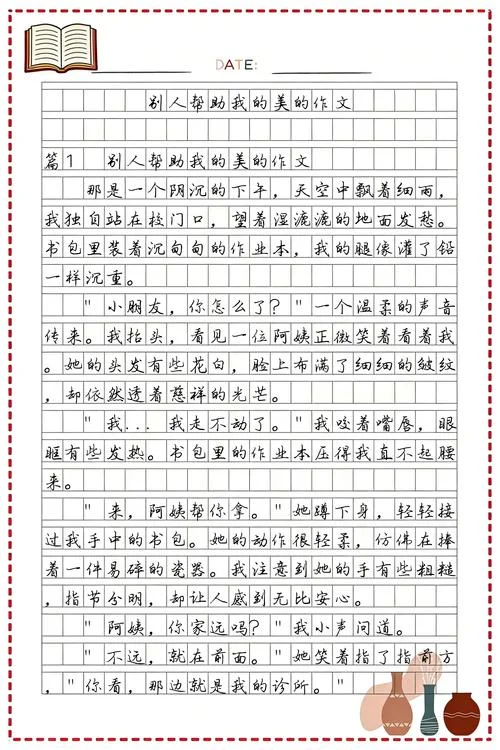 DATE:
别人帮助我的美的作文
篇1 别人帮助我的美的作文
那是一个阴沉的下午，天空中飘着细雨，
我独自站在校门口，望着湿漉漉的地面发愁。
书包里装着沉甸甸的作业本，我的腿像灌了铅
一样沉重。
"小朋友，你怎么了？"一个温柔的声音
传来。我抬头，看见一位阿姨正微笑着看着我
。她的头发有些花白，脸上布满了细细的皱纹
，却依然透着慈祥的光芒。
"我... 我走不动了。"我咬着嘴唇，眼
眶有些发热。书包里的作业本压得我直不起腰
来。
"来，阿姨帮你拿。"她蹲下身，轻轻接
过我手中的书包。她的动作很轻柔，仿佛在捧
着一件易碎的瓷器。我注意到她的手有些粗糙
，指节分明，却让人感到无比安心。
"阿姨，你家远吗？"我小声问道。
"不远，就在前面。"她笑着指了指前方
，"你看，那边就是我的诊所。"